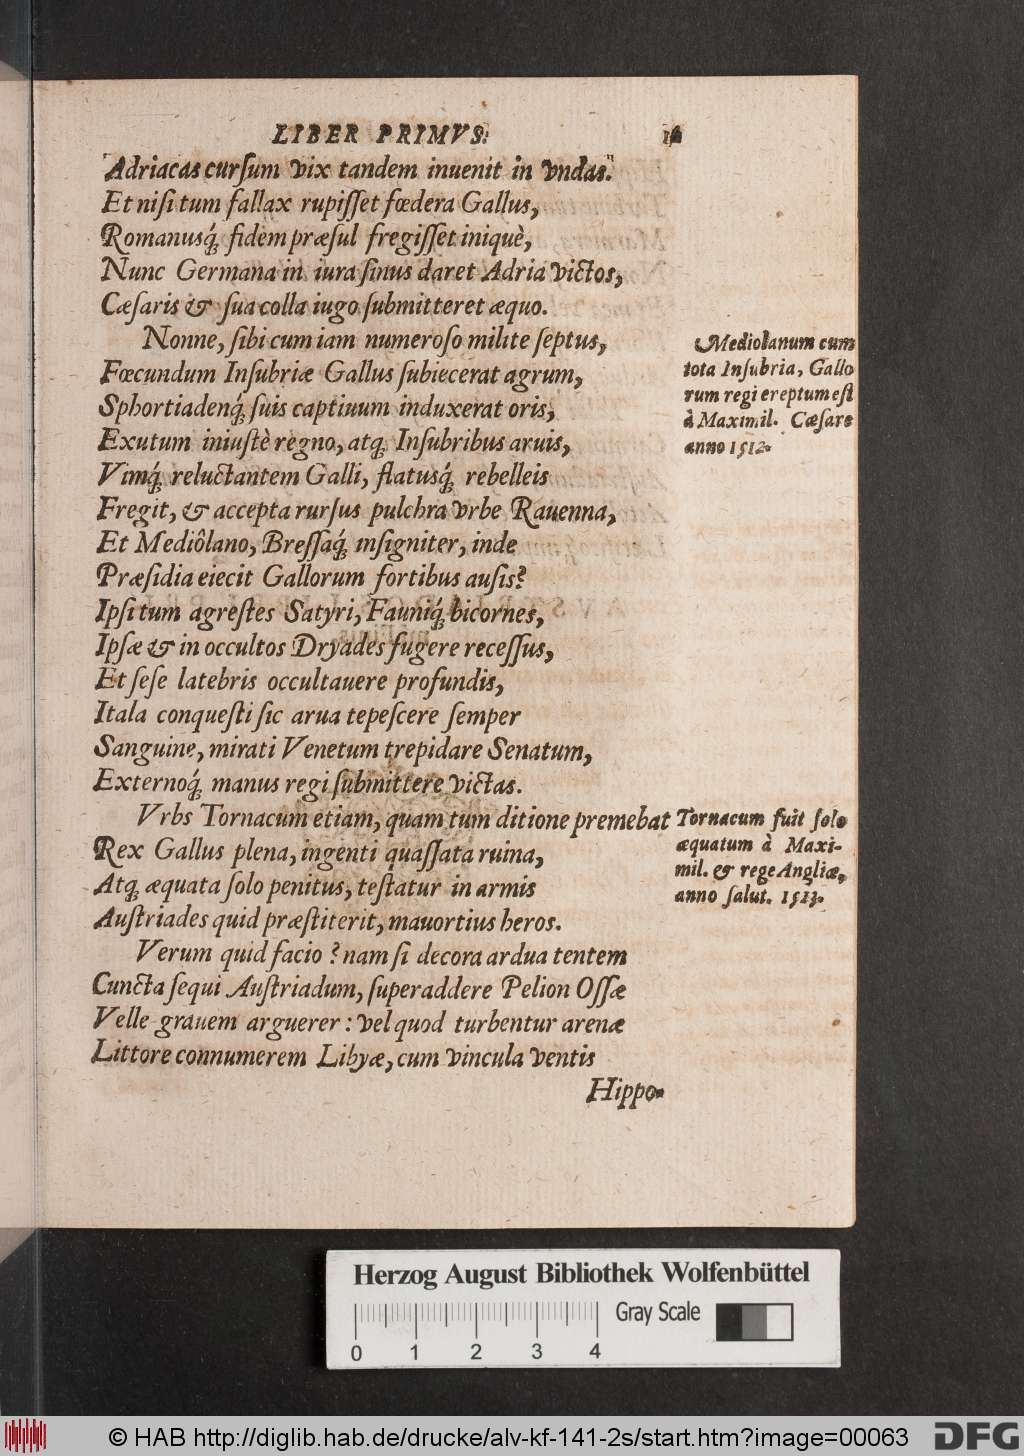 LIBER PRIMVS.
Adriacas curſum vix tandem inuenit in vndas.
Et niſi tum fallax rupiſſet fœdera Gallus,
Romanusq́; fidem præſul fregiſſet iniquè,
Nunc Germana in iura ſinus daret Adria victos,
Cæſaris & ſua colla iugo ſubmitteret æquo.
Nonne, ſibi cum iam numeroſo milite ſeptus,
Fœcundum Inſubriæ Gallus ſubiecerat agrum,
Sphortiadenq́; ſuis captiuum induxerat oris,
Exutum iniuſtè regno, atq; Inſubribus aruis,
Vimq́; reluctantem Galli, flatusq́; rebelleis
Fregit, & accepta rurſus pulchra vrbe Rauenna,
Et Mediôlano, Breſſaq́; inſigniter, inde
Præſidia eiecit Gallorum fortibus auſis?
Ipſi tum agreſtes Satyri, Fauniq́; bicornes,
Ipſæ & in occultos Dryades fugere receſſus,
Et ſeſe latebris occultauere profundis,
Itala conqueſti ſic arua tepeſcere ſemper
Sanguine, mirati Venetum trepidare Senatum,
Externoq́; manus regi ſubmittere victas.
Vrbs Tornacum etiam, quam tum ditione premebat
Rex Gallus plena, ingenti quaſſata ruina,
Atq; æquata ſolo penitus, teſtatur in armis
Auſtriades quid præſtiterit, mauortius heros.
Verum quid facio? nam ſi decora ardua tentem
Cuncta ſequi Auſtriadum, ſuperaddere Pelion Oſſæ
Velle grauem arguerer: vel quod turbentur arenæ
Littore connumerem Libyæ, cum vincula ventis
Hippo-
Mediolanum cum
tota Inſubria, Gallo
rum regi ereptum eſt
à Maximil. Cæſare
anno 1512.
Tornacum fuit ſolo
æquatum à Maxi-
mil. & rege Angliæ,
anno ſalut. 1513.
Herzog August Bibliothek Wolfenbüttel
Gray Scale
0 1 2 3 4
© HAB http://diglib.hab.de/drucke/alv-kf-141-2s/start.htm?image=00063
DFG